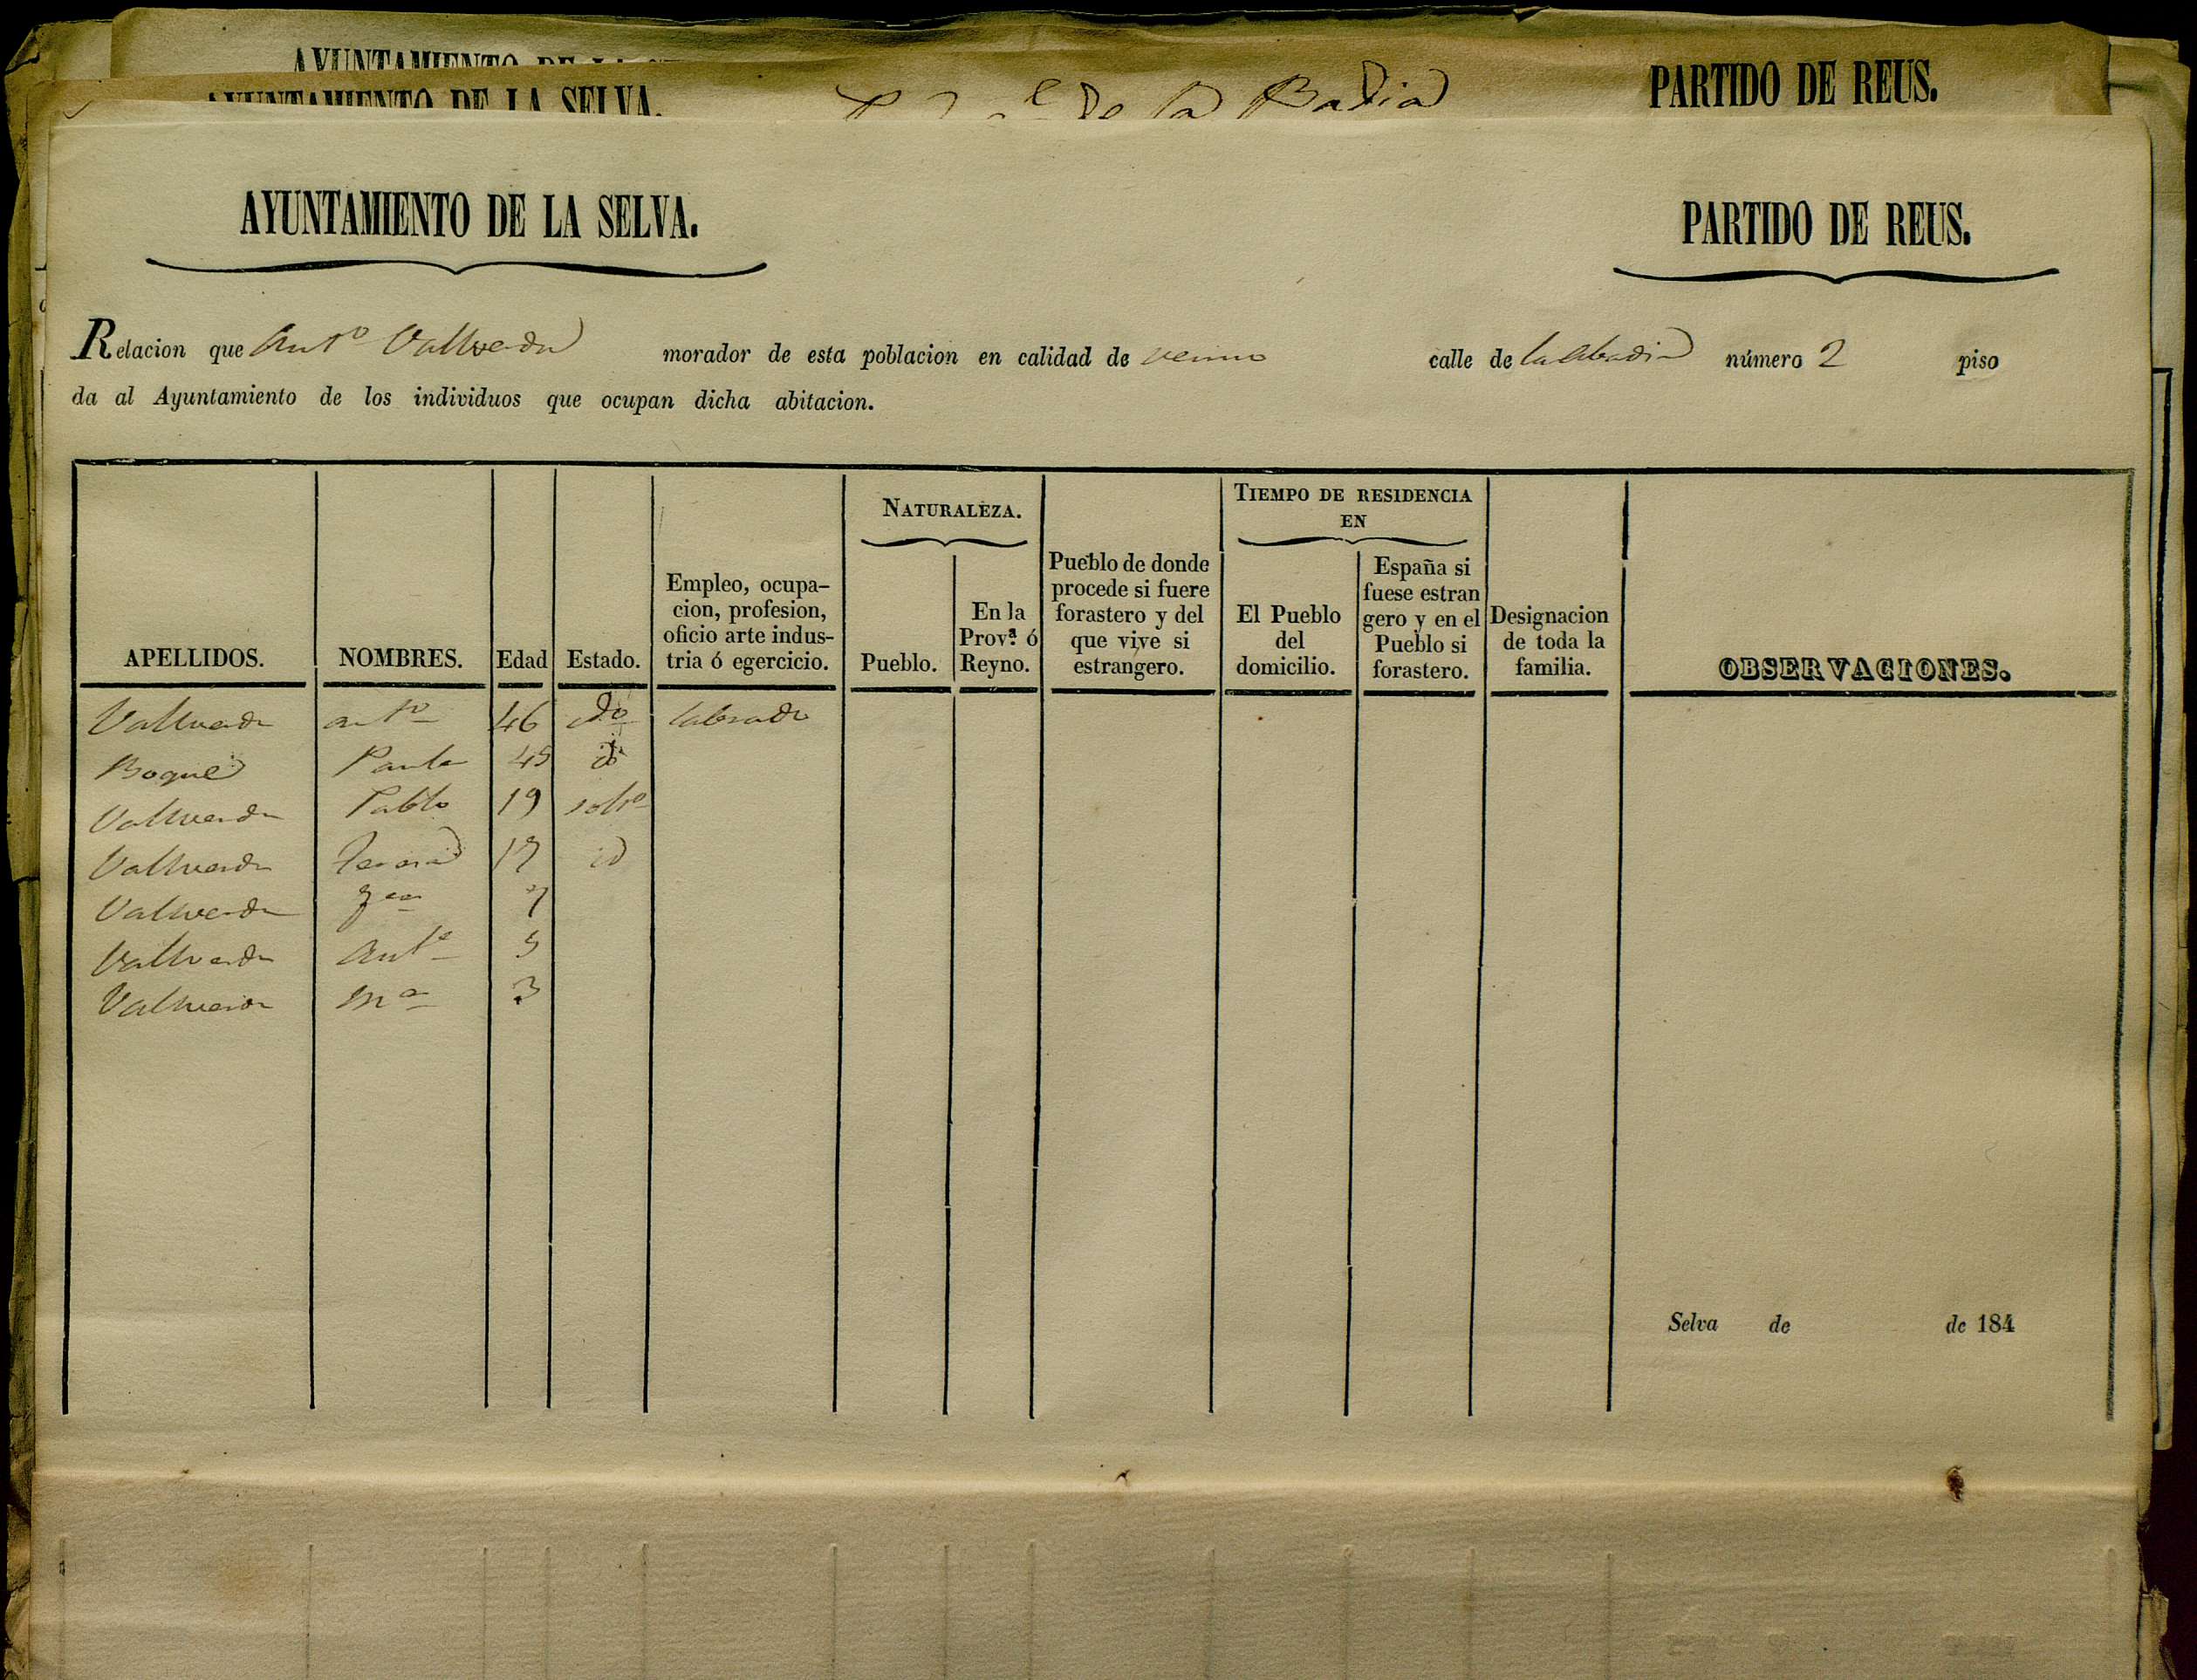 AYUNTAMIENTO DE LA
AYUNTAMIENTO DE LA SELVA.
de la Badia
PARTIDO DE REUS.
AYUNTAMIENTO DE LA SELVA.
PARTIDO DE REUS.
Relacion que Antº Vallverdu morador de esta poblacion en calidad de vecino calle de la Abadia número 2 piso
da al Ayuntamiento de los individuos que ocupan dicha abitacion.
APELLIDOS. NOMBRES. Edad Estado. Empleo, ocupa-cion, profesion, oficio arte indus-tria ó egercicio. NATURALEZA. Pueblo. En la Prov.ª ó Reyno. Pueblo de donde procede si fuere forastero y del que vive si estrangero. TIEMPO DE RESIDENCIA EN El Pueblo del domicilio. España si fuese estran gero y en el Pueblo si forastero. Designacion de toda la familia. OBSERVACIONES.
Vallverdu Antº 46 labrador
Boque Paula 45
Vallverdu Pablo 19 soltº
Vallverdu Teresa 17 id
Vallverdu 7
Vallverdu Antª 5
Vallverdu Mª 3
Selva de de 184